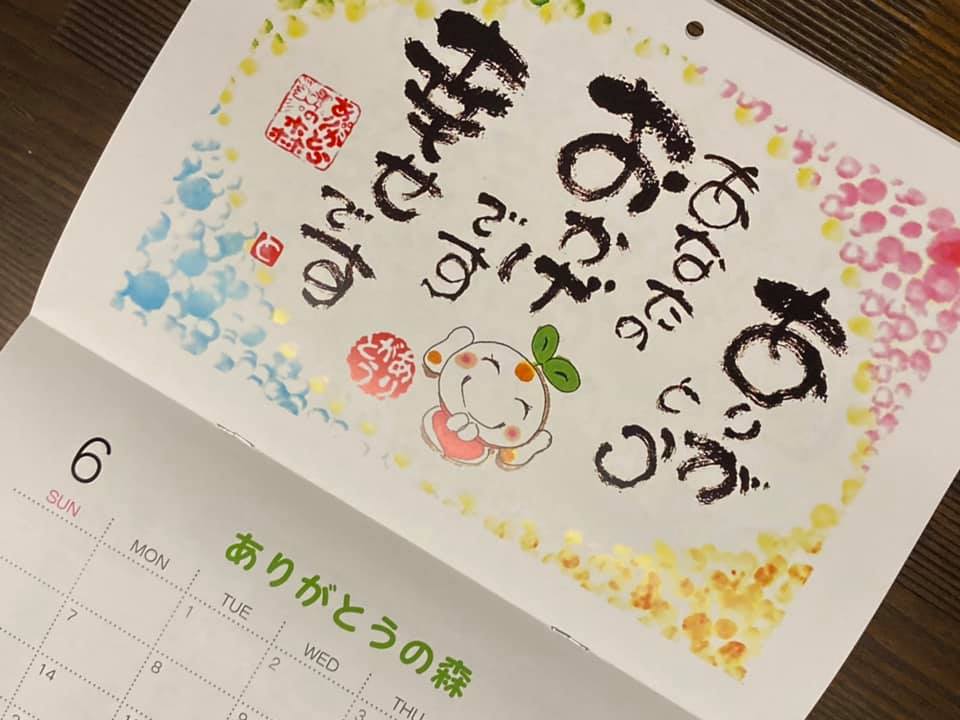 ありがとう
あなたの
おかげ
です
幸せ
です
ありがとうの森
ありがとう
6
ありがとうの森
SUN MON TUE WED THU
1 2 3
7 8 9
14